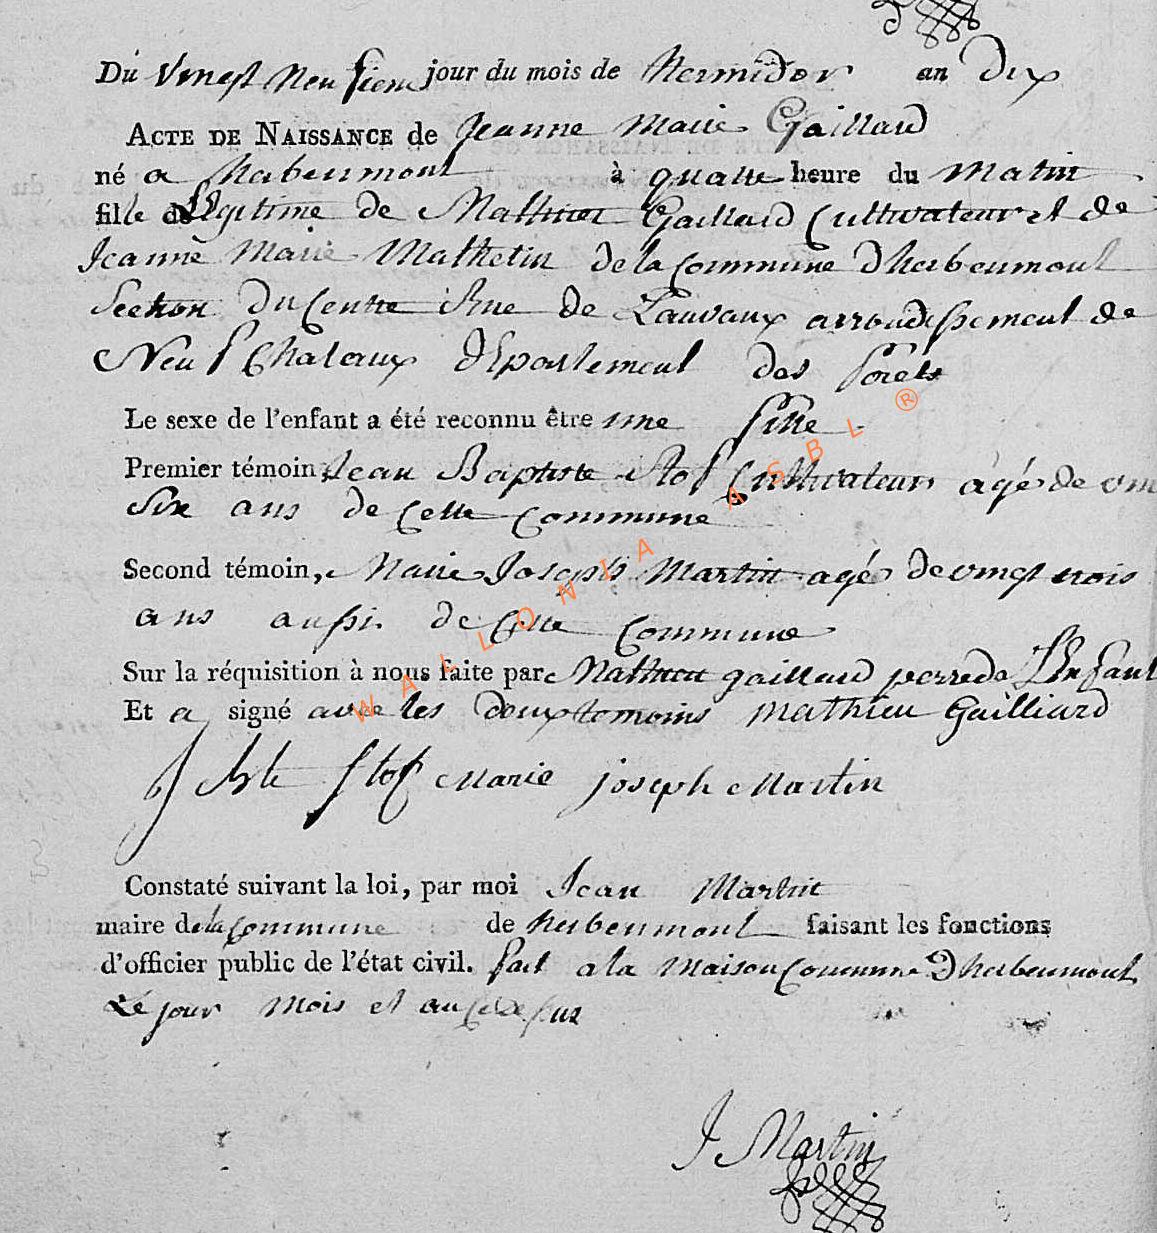 Du Vingt Neufsieme jour du mois de thermidor an Dix
ACTE DE NAISSANCE de Jeanne Marie Gaillard
né a herbeumont à quatre heure du Matin
fille de Legitime de Mathieu Gaillard Cultivateur et de
Jeanne Marie Mathelin de la Commune Dherbeumont
Section Du Centre Rue de Lauvaux arroudissement de
Neufchateaux Departement des forets
Le sexe de l'enfant a été reconnu être une fille
Premier témoin, Jean Baptiste Stof Cultivateur agé de
Six ans de Cette Commune
Second témoin, Marie Joseph Martin agé de vingt trois
ans aussi de Cette Commune
Sur la réquisition à nous faite par Mathieu gaillard perre de L'Enfant
Et a signé avec les deux temoins Mathieu Gailliard
J Bte Stof Marie joseph Martin
Constaté suivant la loi, par moi Jean Martin
maire de la Commune de herbeumont faisant les fonctions
d'officier public de l'état civil. fait a la Maison Commune Dherbeumont
Le jour Mois et an que dessus
J Martin
WALLONIA ASBL ®